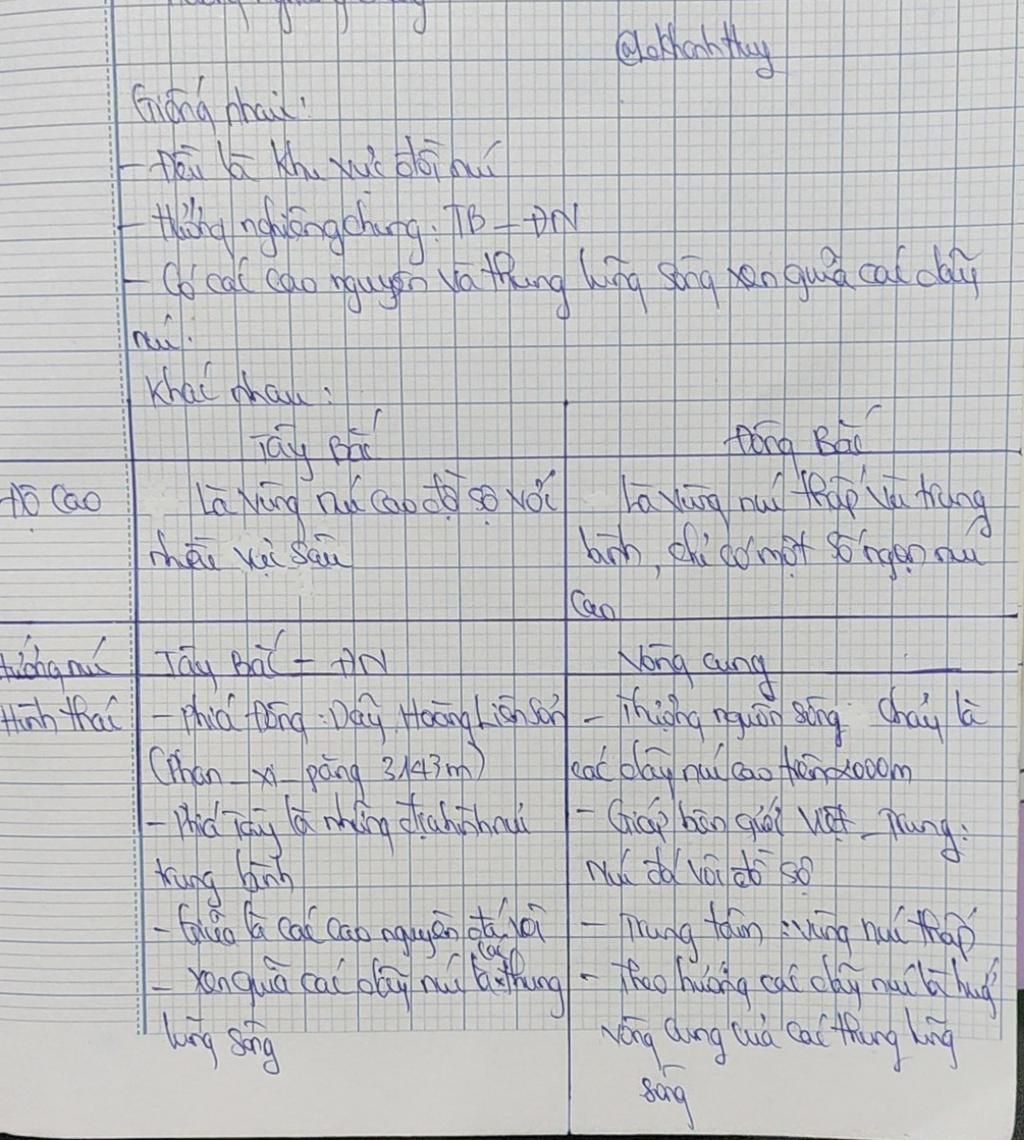 @Lokhanhthuy
Giống nhau:
- Đều là khu vực đồi núi
- Hướng nghiêng chung: TB - ĐN
- Có các cao nguyên và thung lũng sông xen giữa các dãy
núi.
Khác nhau:
Tây Bắc Đông Bắc
Độ cao Là vùng núi cao đồ sộ với Là vùng núi thấp và trung
nhiều vực sâu bình, chỉ có một số ngọn núi
cao
Hướng núi Tây Bắc - ĐN Vòng cung
Hình thái - Phía Đông: Dãy Hoàng Liên Sơn - Thượng nguồn sông Chảy là
(Phan_xi_păng 3143m) các dãy núi cao trên 2000m
- Phía Tây là những địa hình núi - Giáp biên giới Việt_Trung:
trung bình núi đá vôi đồ sộ
- Giữa là các cao nguyên đá vôi - Trung tâm: vùng núi thấp
- Xen giữa các dãy núi là các thung - Theo hướng các dãy núi là hướng
lũng sông vòng cung của các thung lũng
sông